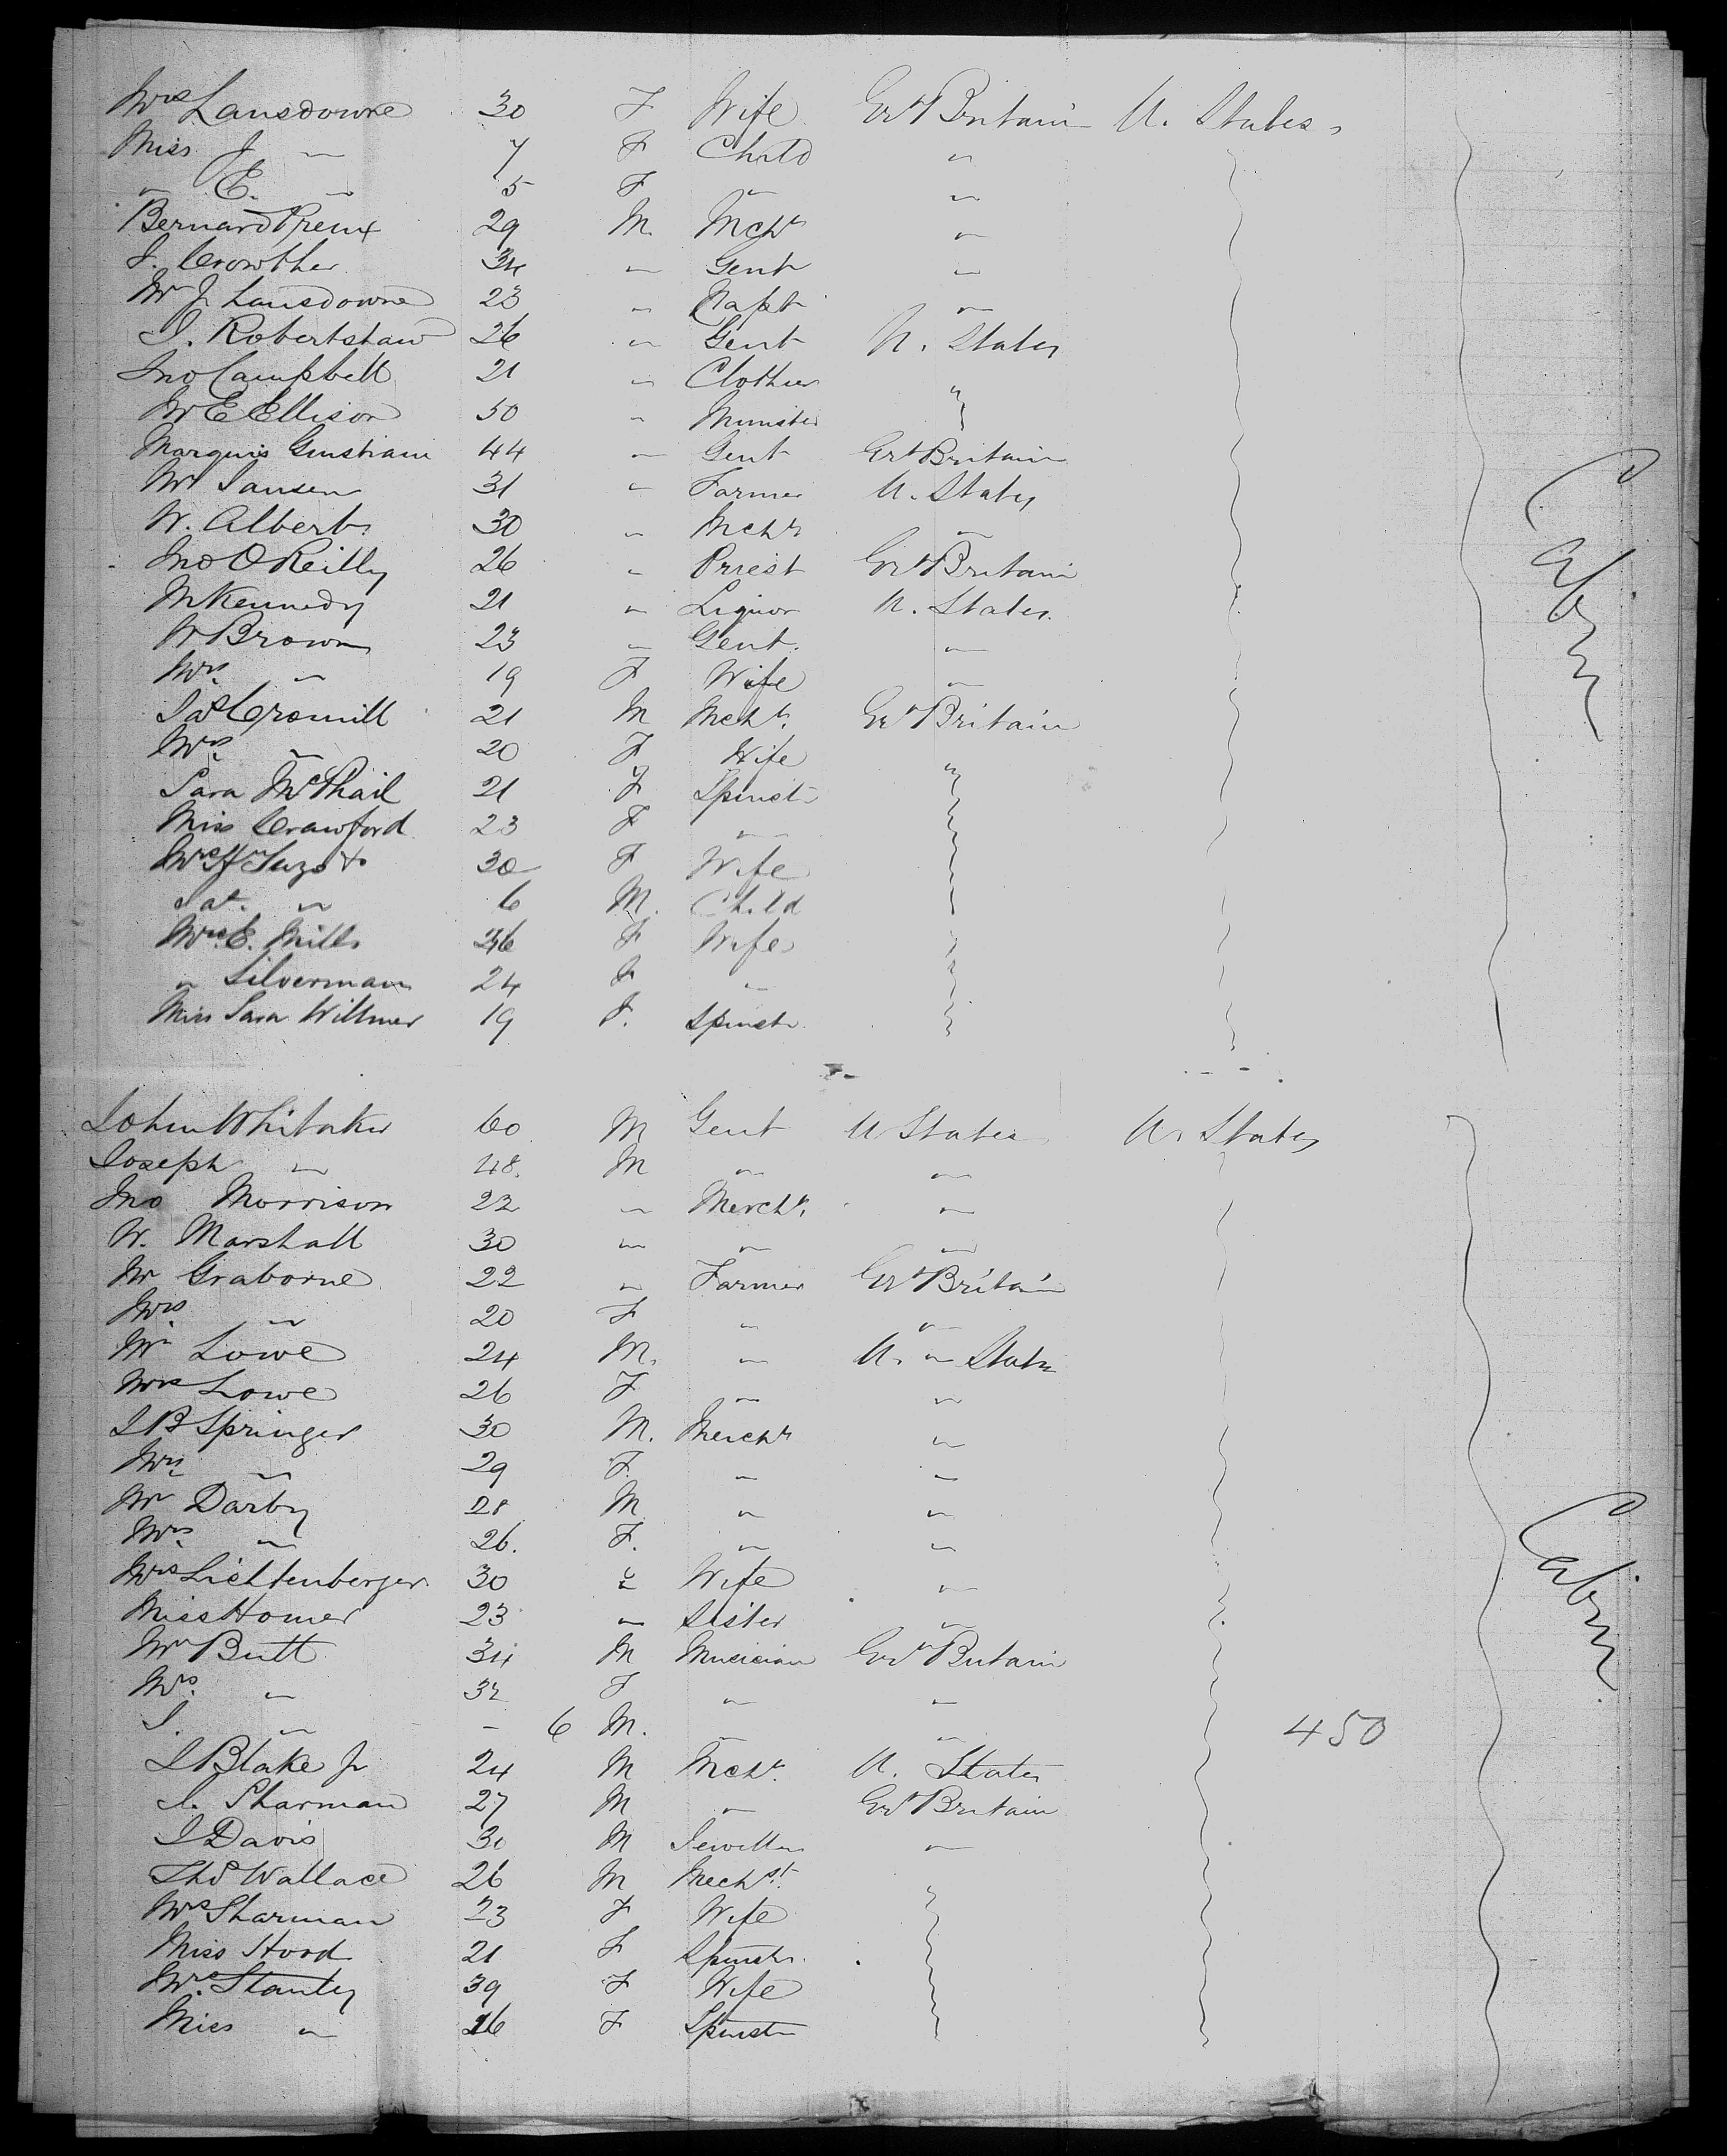 Mrs Lansdowne 30 F Wife Grt Britain U. States
Miss J " 7 F Child "
" E. " 5 F " "
Bernard Preux 29 M. Mcht "
J. Crowther 34 " Gent "
Mr J Lansdowne 23 " Capt "
J. Robertshaw 26 " Gent U. States
Jno Campbell 21 " Clothier "
Mr E Ellison 50 " Minister
Marquis Gustiani 44 " Gent Grt Britain
Mr Jansen 31 " Farmer U. States
W. Alberts 30 " Mcht "
Jno O Reilly 26 " Priest Grt Britain
M Kennedy 21 " Liquor U. States
W Brown 23 " Gent. "
Mrs " 19 F Wife "
Jas Cromill 21 M Mcht. Grt Britain
Mrs " 20 F Wife "
Sara McPhail 21 F Spinstr
Miss Crawford 23 F "
Mrs 30 F Wife
" 6 M. Child
Mrs E. Mills 36 F Wife
" Silverman 24 F "
Miss Sara Willmer 19 F. Spinstr
Cabin
John Whitaker 60 M Gent U States U. States
Joseph " 48. M " "
Jno Morrison 22 " Mercht. "
W. Marshall 30 " " "
Mr Graborne 22 " Farmer Grt Britain
Mrs. " 20 F " "
Mr Lowe 24 M. " U. " States
Mrs Lowe 26 F " "
J B Springer 30 M. Mercht "
Mrs " 29 F. " "
Mr Darby 28 M " "
Mrs. " 26. F. " "
Mrs Lichtenberger 30 " Wife "
Miss Homer 23 " Sister "
Mr Butt 34 M Musician Grt Britain
Mrs. " 32 F " "
J. " - 6 M. " " 450
J Blake Jr 24 M Mcht. U. States
J. Sharman 27 M " Grt Britain
J Davis 30 M Jeweller "
Thos Wallace 26 M Mechst. "
Mrs Sharman 23 F Wife
Miss Hood 21 F Spinstr.
Mrs. Stanley 39 F Wife
Miss " 16 F Spinstr
Cabin